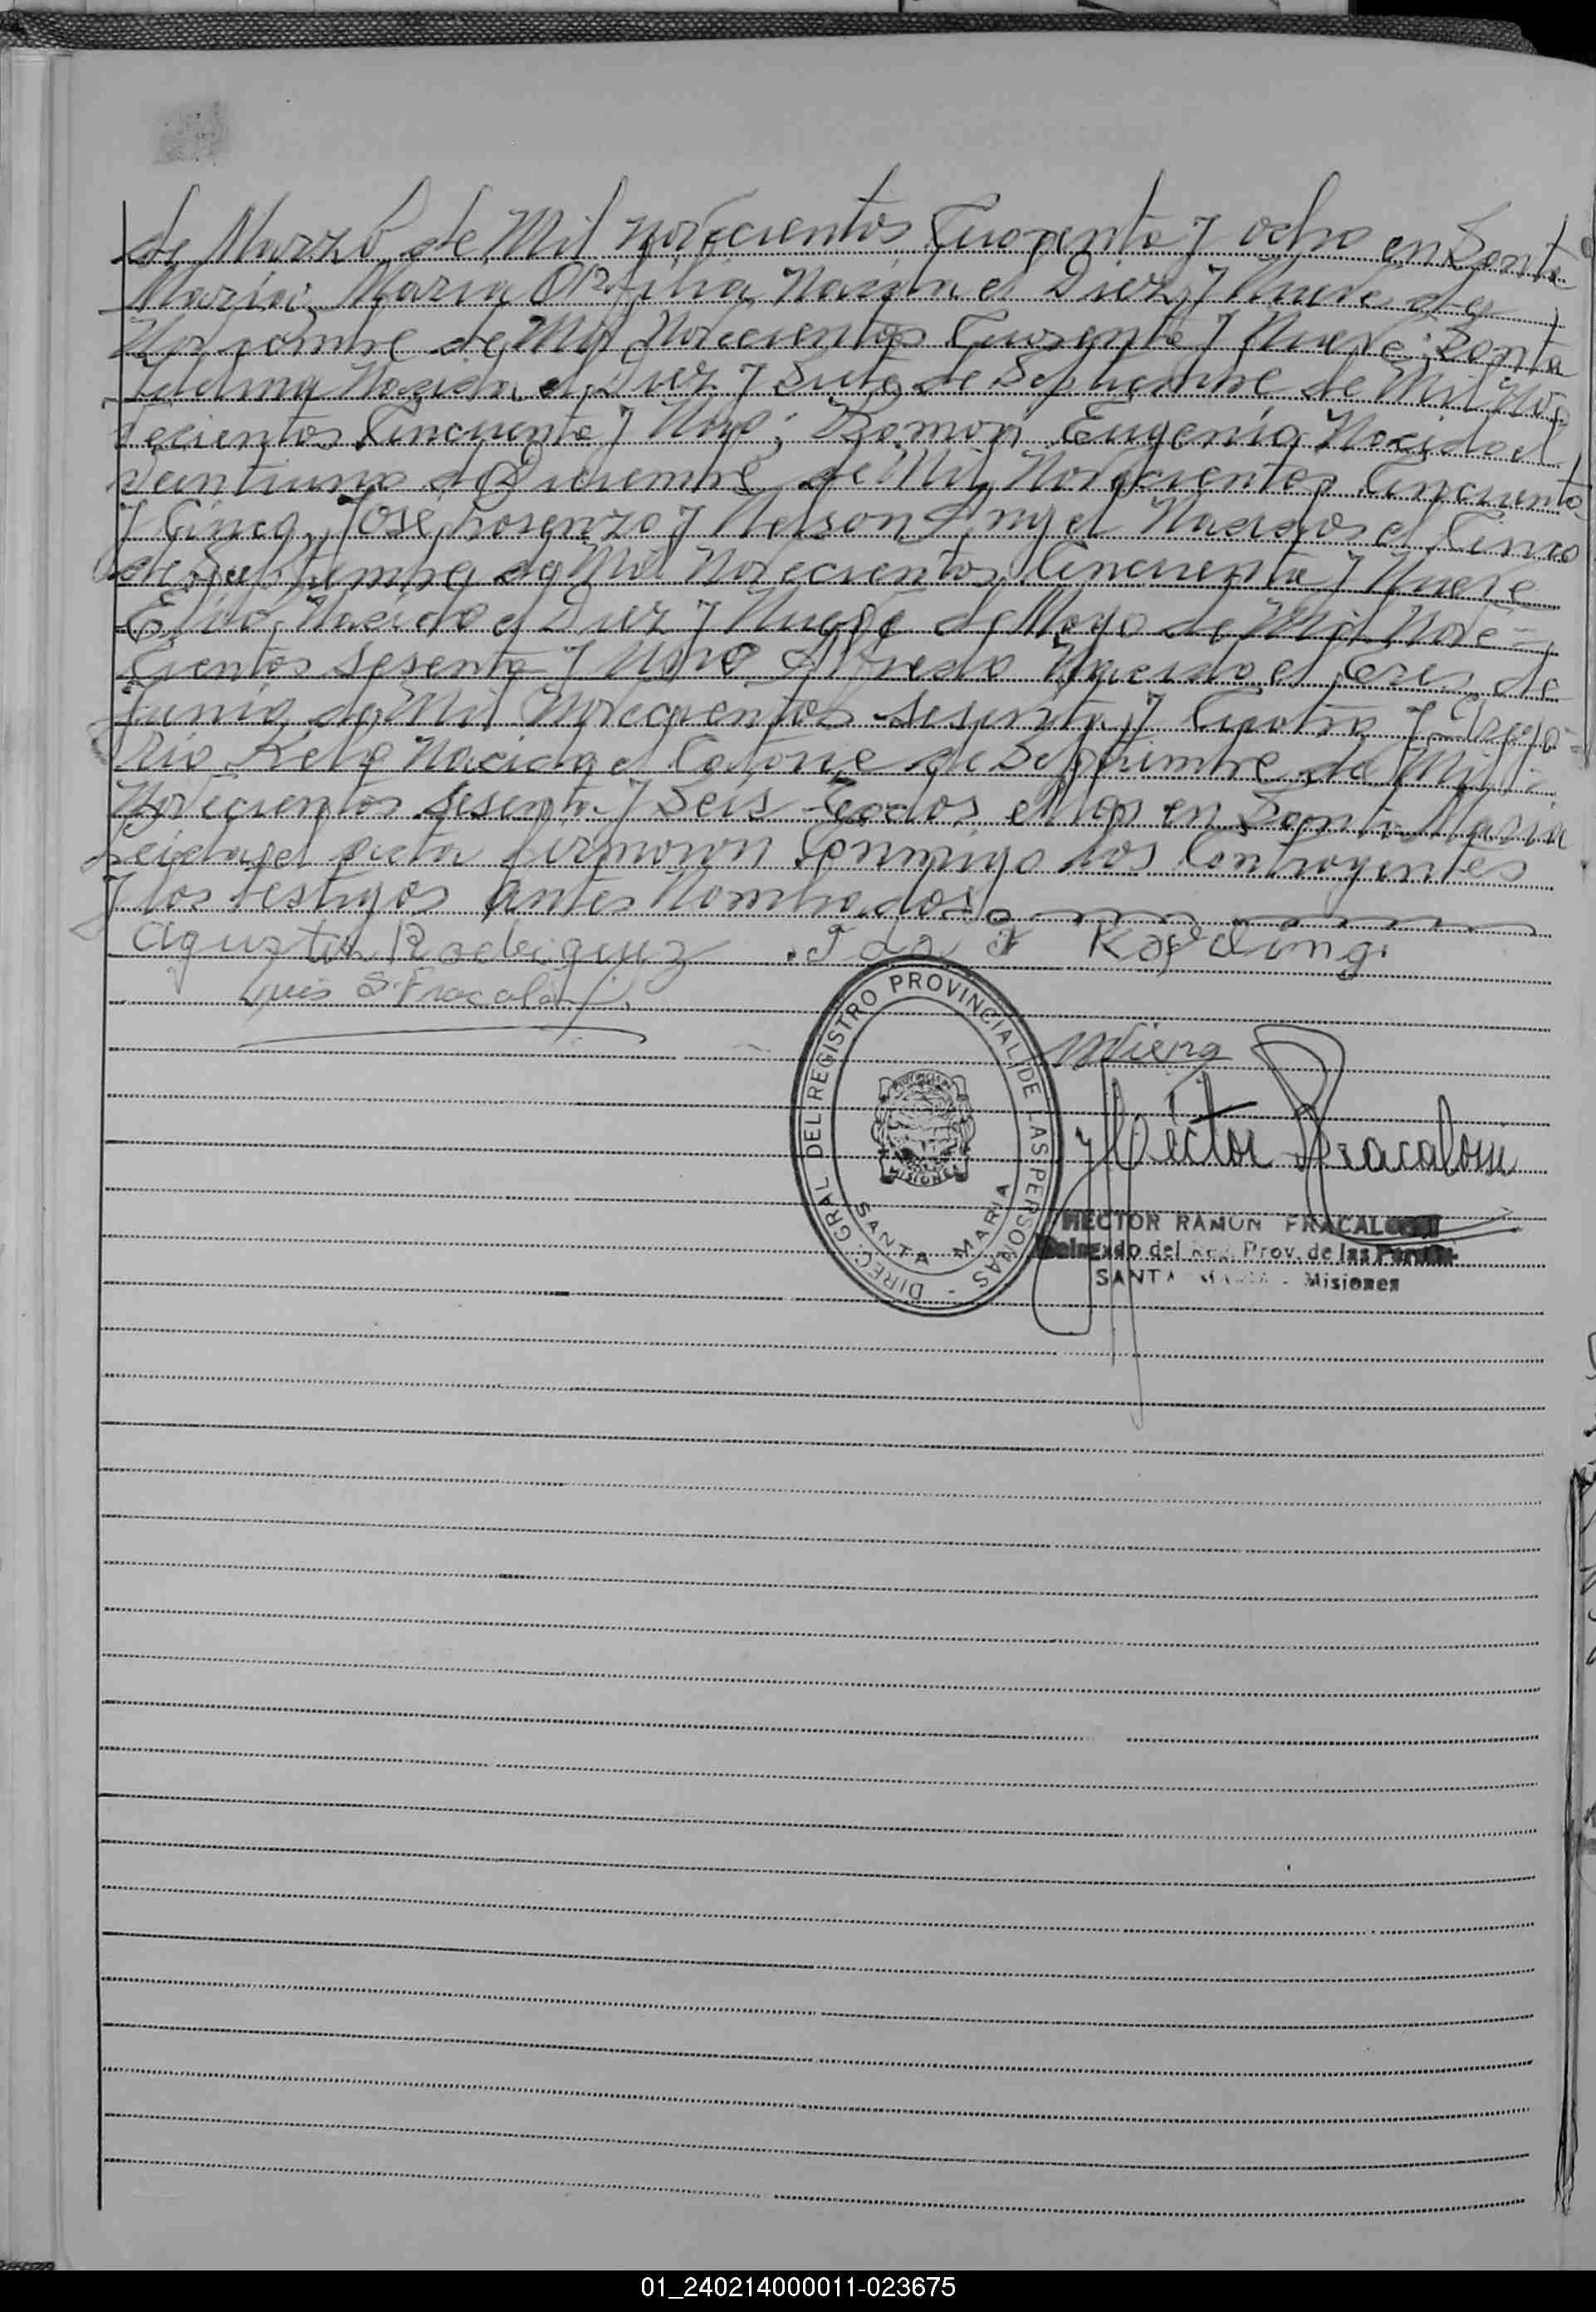 de Marzo de Mil Novecientos Cuarenta y ocho en Santa
Maria; Maria Otilia Nacida el Diez y Nueve de
Noviembre de Mil Novecientos Cuarenta y Nueve; Santa
Idelma Nacida el Diez y Siete de Septiembre de Mil No-
vecientos Cincuenta y ; Ramona Eugenia Nacida el
Veintiuno de Diciembre de Mil Novecientos Cincuenta
y Cinco, José Lorenzo y Nelson Angel Nacidos el Cinco
de Septiembre de Mil Novecientos Cincuenta y Nueve
Elvio Nacido el Diez y Nueve de Mayo de Mil Nove=
cientos Sesenta y Alfredo Nacido el de
Junio de Mil Novecientos Sesenta y Cuatro y Grego=
rio Nacido el Catorce de Septiembre de Mil
Novecientos Sesenta y Seis Todos ellos en Santa Maria
Leida el acta firmaron Conmigo los Contrayentes
y los testigos Antes Nombrados
Agustin Rodriguez . Ida
Luis S. Fracalossi.
Hector Fracalossi
DIREC. GRAL DEL REGISTRO PROVINCIAL DE LAS PERSONAS -
MISIONES
SANTA MARIA
HECTOR RAMON FRACALOSSI
Delegado del Reg. Prov. de las Personas
SANTA MARIA - Misiones
01_240214000011-023675